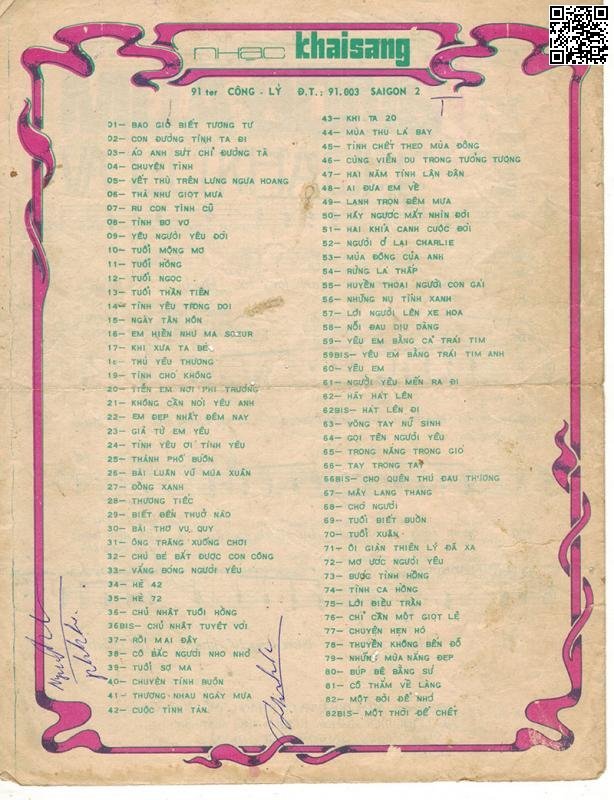 nhạc khaisang
91 ter CÔNG - LÝ Đ.T.: 91.003 SAIGON 2
01— BAO GIỜ BIẾT TƯƠNG TƯ
02— CON ĐƯỜNG TÌNH TA ĐI
03— ÁO ANH SỨT CHỈ ĐƯỜNG TÀ
04— CHUYỆN TÌNH
05— VẾT THÙ TRÊN LƯNG NGỰA HOANG
06— THÀ NHƯ GIỌT MƯA
07— RU CON TÌNH CŨ
08— TÌNH BƠ VƠ
09— YÊU NGƯỜI YÊU ĐỜI
10— TUỔI MỘNG MƠ
11— TUỔI HỒNG
12— TUỔI NGỌC
13— TUỔI THẦN TIÊN
14— TÌNH YÊU TRONG DOI
15— NGÀY TÂN HÔN
16— EM HIỀN NHƯ MA SOEUR
17— KHI XƯA TA BÉ
18— THÚ YÊU THƯƠNG
19— TÌNH CHO KHÔNG
20— TIỄN EM NƠI PHI TRƯỜNG
21— KHÔNG CẦN NÓI YÊU ANH
22— EM ĐẸP NHẤT ĐÊM NAY
23— GIẢ TỪ EM YÊU
24— TÌNH YÊU ƠI TÌNH YÊU
25— THÀNH PHỐ BUỒN
26— BÀI LUÂN VŨ MÙA XUÂN
27— ĐỒNG XANH
28— THƯƠNG TIẾC
29— BIẾT ĐẾN THUỞ NÀO
30— BÀI THƠ VU QUY
31— ÔNG TRĂNG XUỐNG CHƠI
32— CHÚ BÉ BẮT ĐƯỢC CON CÔNG
33— VẮNG BÓNG NGƯỜI YÊU
34— HÈ 42
35— HÈ 72
36— CHỦ NHẬT TUỔI HỒNG
36BIS— CHỦ NHẬT TUYỆT VỜI
37— RỒI MAI ĐÂY
38— CÔ BẮC NGƯỜI NHO NHỎ
39— TUỔI SỢ MA
40— CHUYỆN TÌNH BUỒN
41— THƯƠNG NHAU NGÀY MƯA
42— CUỘC TÌNH TÀN
43— KHI TA 20
44— MÙA THU LÁ BAY
45— TÌNH CHẾT THEO MÙA ĐÔNG
46— CÙNG VIỄN DU TRONG TƯỞNG TƯỢNG
47— HAI NĂM TÌNH LẬN ĐẬN
48— AI ĐƯA EM VỀ
49— LẠNH TRỌN ĐÊM MƯA
50— HÃY NGƯỚC MẮT NHÌN ĐỜI
51— HAI KHÍA CẠNH CUỘC ĐỜI
52— NGƯỜI Ở LẠI CHARLIE
53— MÙA ĐÔNG CỦA ANH
54— RỪNG LÁ THẤP
55— HUYỀN THOẠI NGƯỜI CON GÁI
56— NHỮNG NỤ TÌNH XANH
57— LỜI NGƯỜI LÊN XE HOA
58— NỖI ĐAU DỊU DÀNG
59— YÊU EM BẰNG CẢ TRÁI TIM
59BIS— YÊU EM BẰNG TRÁI TIM ANH
60— YÊU EM
61— NGƯỜI YÊU MẾN RA ĐI
62— HÃY HÁT LÊN
62BIS— HÁT LÊN ĐI
63— VÒNG TAY NỮ SINH
64— GỌI TÊN NGƯỜI YÊU
65— TRONG NẮNG TRONG GIÓ
66— TAY TRONG TAY
66BIS— CHO QUÊN THÚ ĐAU THƯƠNG
67— MÂY LANG THANG
68— CHỜ NGƯỜI
69— TUỔI BIẾT BUỒN
70— TUỔI XUÂN
71— ÔI GIÀN THIÊN LÝ ĐÃ XA
72— MƠ ƯỚC NGƯỜI YÊU
73— BƯỚC TÌNH HỒNG
74— TÌNH CA HỒNG
75— LỜI ĐIÊU TRĂN
76— CHỈ CẦN MỘT GIỌT LỆ
77— CHUYỆN HẸN HÒ
78— THUYỀN KHÔNG BẾN ĐỖ
79— NHỮNG MÙA NẮNG ĐẸP
80— BÚP BÊ BẰNG SỨ
81— CÔ THẮM VỀ LÀNG
82— MỘT ĐỜI ĐỂ NHỚ
82BIS— MỘT THỜI ĐỂ CHẾT